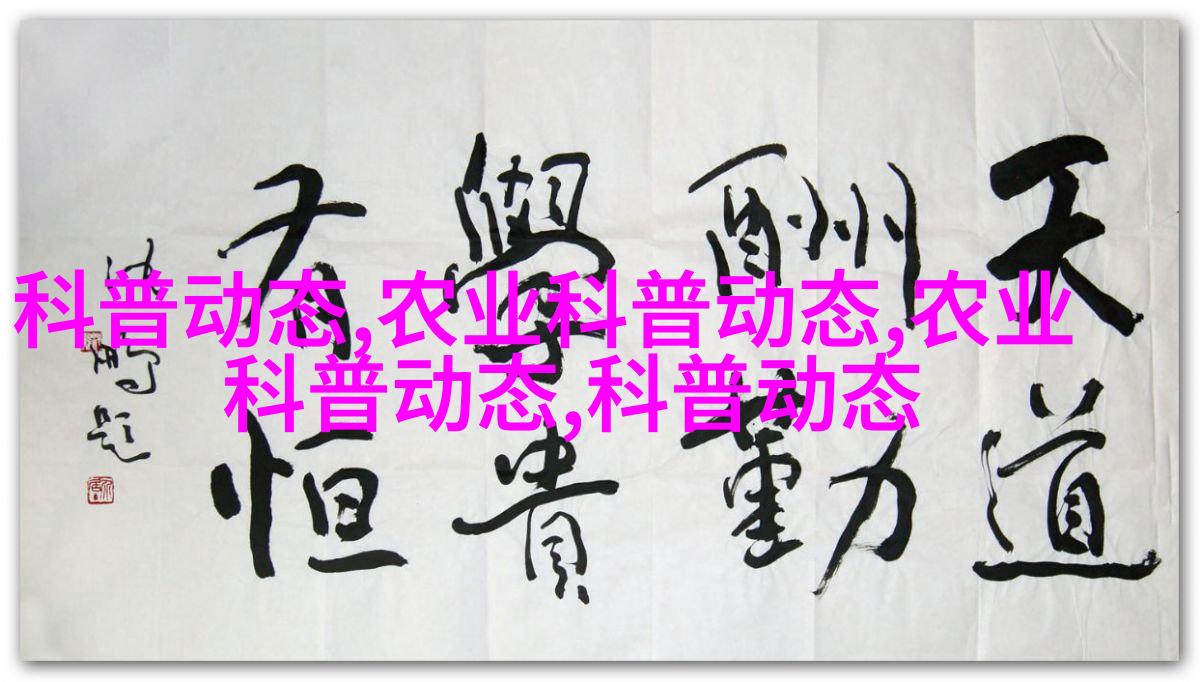 科普动态,农业科普动态,农业
科普动态,科普动态
天道
酬勤
學貴
有恒
沈鹏题